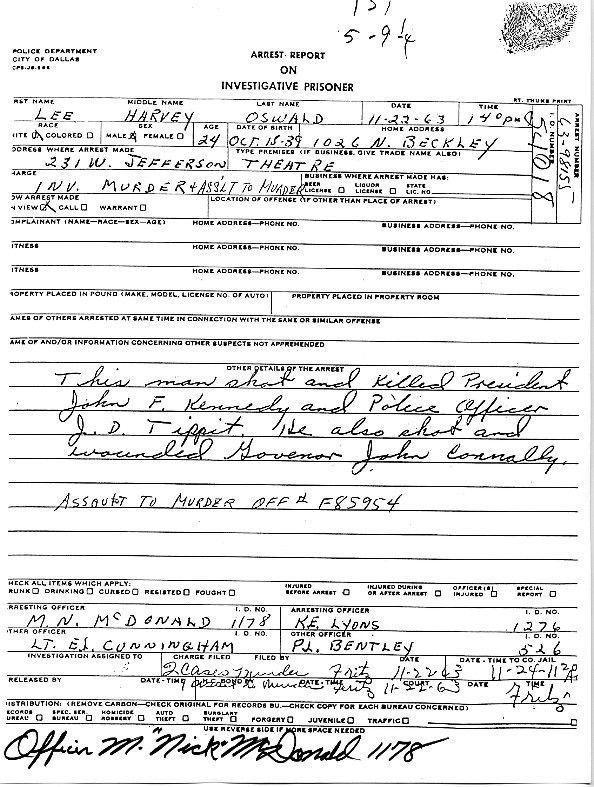 131
5-9 1/4
POLICE DEPARTMENT
CITY OF DALLAS
ARREST REPORT
ON
INVESTIGATIVE PRISONER
RT. THUMB PRINT
RST NAME MIDDLE NAME LAST NAME DATE TIME
LEE HARVEY OSWALD 11-22-63 1 40 PM
RACE SEX AGE DATE OF BIRTH HOME ADDRESS
ITE COLORED MALE FEMALE 24 OCT 18-39 1026 N. BECKLEY
DDRESS WHERE ARREST MADE TYPE PREMISES (IF BUSINESS, GIVE TRADE NAME ALSO)
231 W. JEFFERSON THEATRE
HARGE BUSINESS WHERE ARREST MADE HAS:
INV. MURDER + ASSLT TO MURDER BEER LICENSE LIQUOR LICENSE STATE LIC. NO.
OW ARREST MADE LOCATION OF OFFENSE (IF OTHER THAN PLACE OF ARREST)
N VIEW CALL WARRANT
ARREST NUMBER
63-98155
I D NUMBER
54018
OMPLAINANT (NAME—RACE—SEX—AGE) HOME ADDRESS—PHONE NO. BUSINESS ADDRESS—PHONE NO.
ITNESS HOME ADDRESS—PHONE NO. BUSINESS ADDRESS—PHONE NO.
ITNESS HOME ADDRESS—PHONE NO. BUSINESS ADDRESS—PHONE NO.
ROPERTY PLACED IN POUND (MAKE, MODEL, LICENSE NO. OF AUTO) PROPERTY PLACED IN PROPERTY ROOM
AMES OF OTHERS ARRESTED AT SAME TIME IN CONNECTION WITH THE SAME OR SIMILAR OFFENSE
AME OF AND/OR INFORMATION CONCERNING OTHER SUSPECTS NOT APPREHENDED
OTHER DETAILS OF THE ARREST
This man shot and killed President
John F. Kennedy and Police Officer
J. D. Tippit. He also shot and
wounded Govenor John Connally.
ASSAULT TO MURDER OFF # F85954
HECK ALL ITEMS WHICH APPLY:
RUNK DRINKING CURSED RESISTED FOUGHT INJURED BEFORE ARREST INJURED DURING OR AFTER ARREST OFFICER(S) INJURED SPECIAL REPORT
RRESTING OFFICER I. D. NO. ARRESTING OFFICER I. D. NO.
M. N. McDONALD 1178 K.E. LYONS 1276
THER OFFICER I. D. NO. OTHER OFFICER I. D. NO.
LT. E.L. CUNNINGHAM P.L. BENTLEY 526
INVESTIGATION ASSIGNED TO CHARGE FILED FILED BY DATE DATE - TIME TO CO. JAIL
2 Cases Murder Fritz 11-22-63 11-24-11 20
RELEASED BY DATE-TIME DATE - TIME COURT DATE TIME
Murder Fritz 11-22-63 Fritz
ISTRIBUTION: (REMOVE CARBON—CHECK ORIGINAL FOR RECORDS BU.—CHECK COPY FOR EACH BUREAU CONCERNED)
ECORDS UREAU SPEC. SER. BUREAU HOMICIDE ROBBERY AUTO THEFT BURGLARY THEFT FORGERY JUVENILE TRAFFIC
USE REVERSE SIDE IF MORE SPACE NEEDED
Officer M. "Nick" McDonald 1178